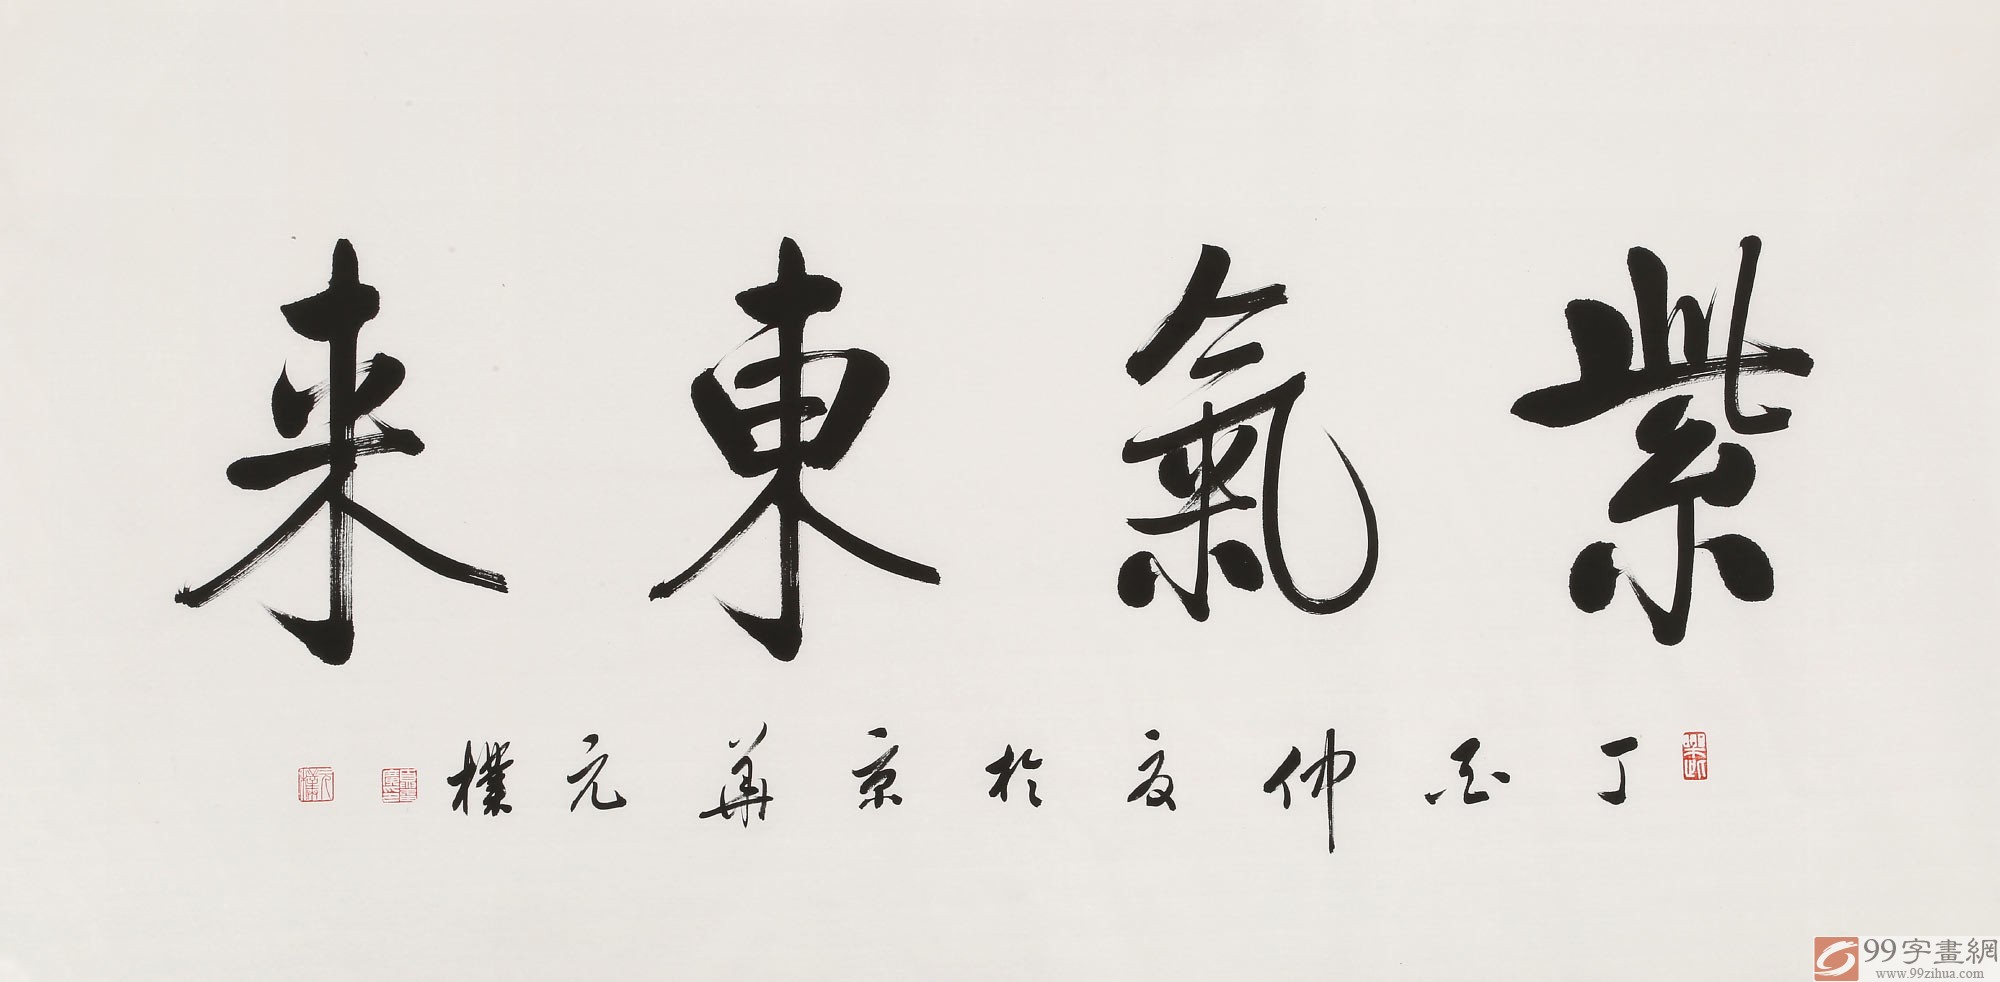 紫氣東來
丁酉仲夏於京華元樸
99字畫網
www.99zihua.com